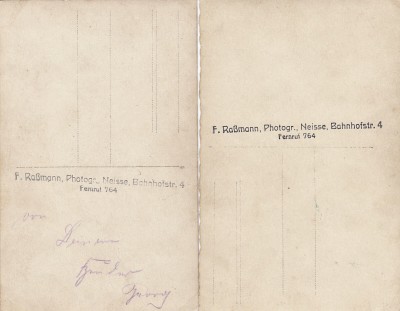 F. Raßmann, Photogr., Neisse, Bahnhofstr. 4
Fernruf 764
von
Georg
F. Raßmann, Photogr., Neisse, Bahnhofstr. 4
Fernruf 764